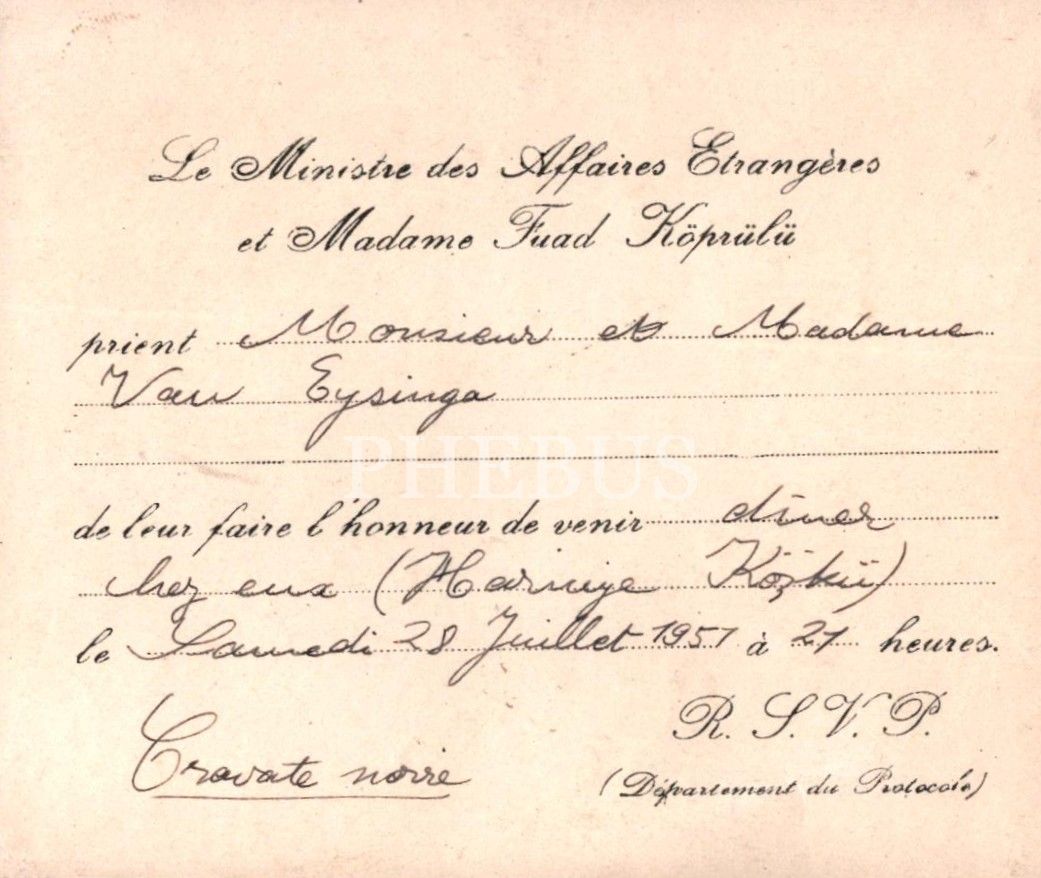 Le Ministre des Affaires Etrangères
et Madame Fuad Köprülü
prient Monsieur et Madame
Van Eysinga
PHEBUS
de leur faire l'honneur de venir dîner
chez eux (Hariciye Köşkü)
le Samedi 28 Juillet 1951 à 21 heures.
R. S. V. P.
Cravate noire
(Département du Protocole)